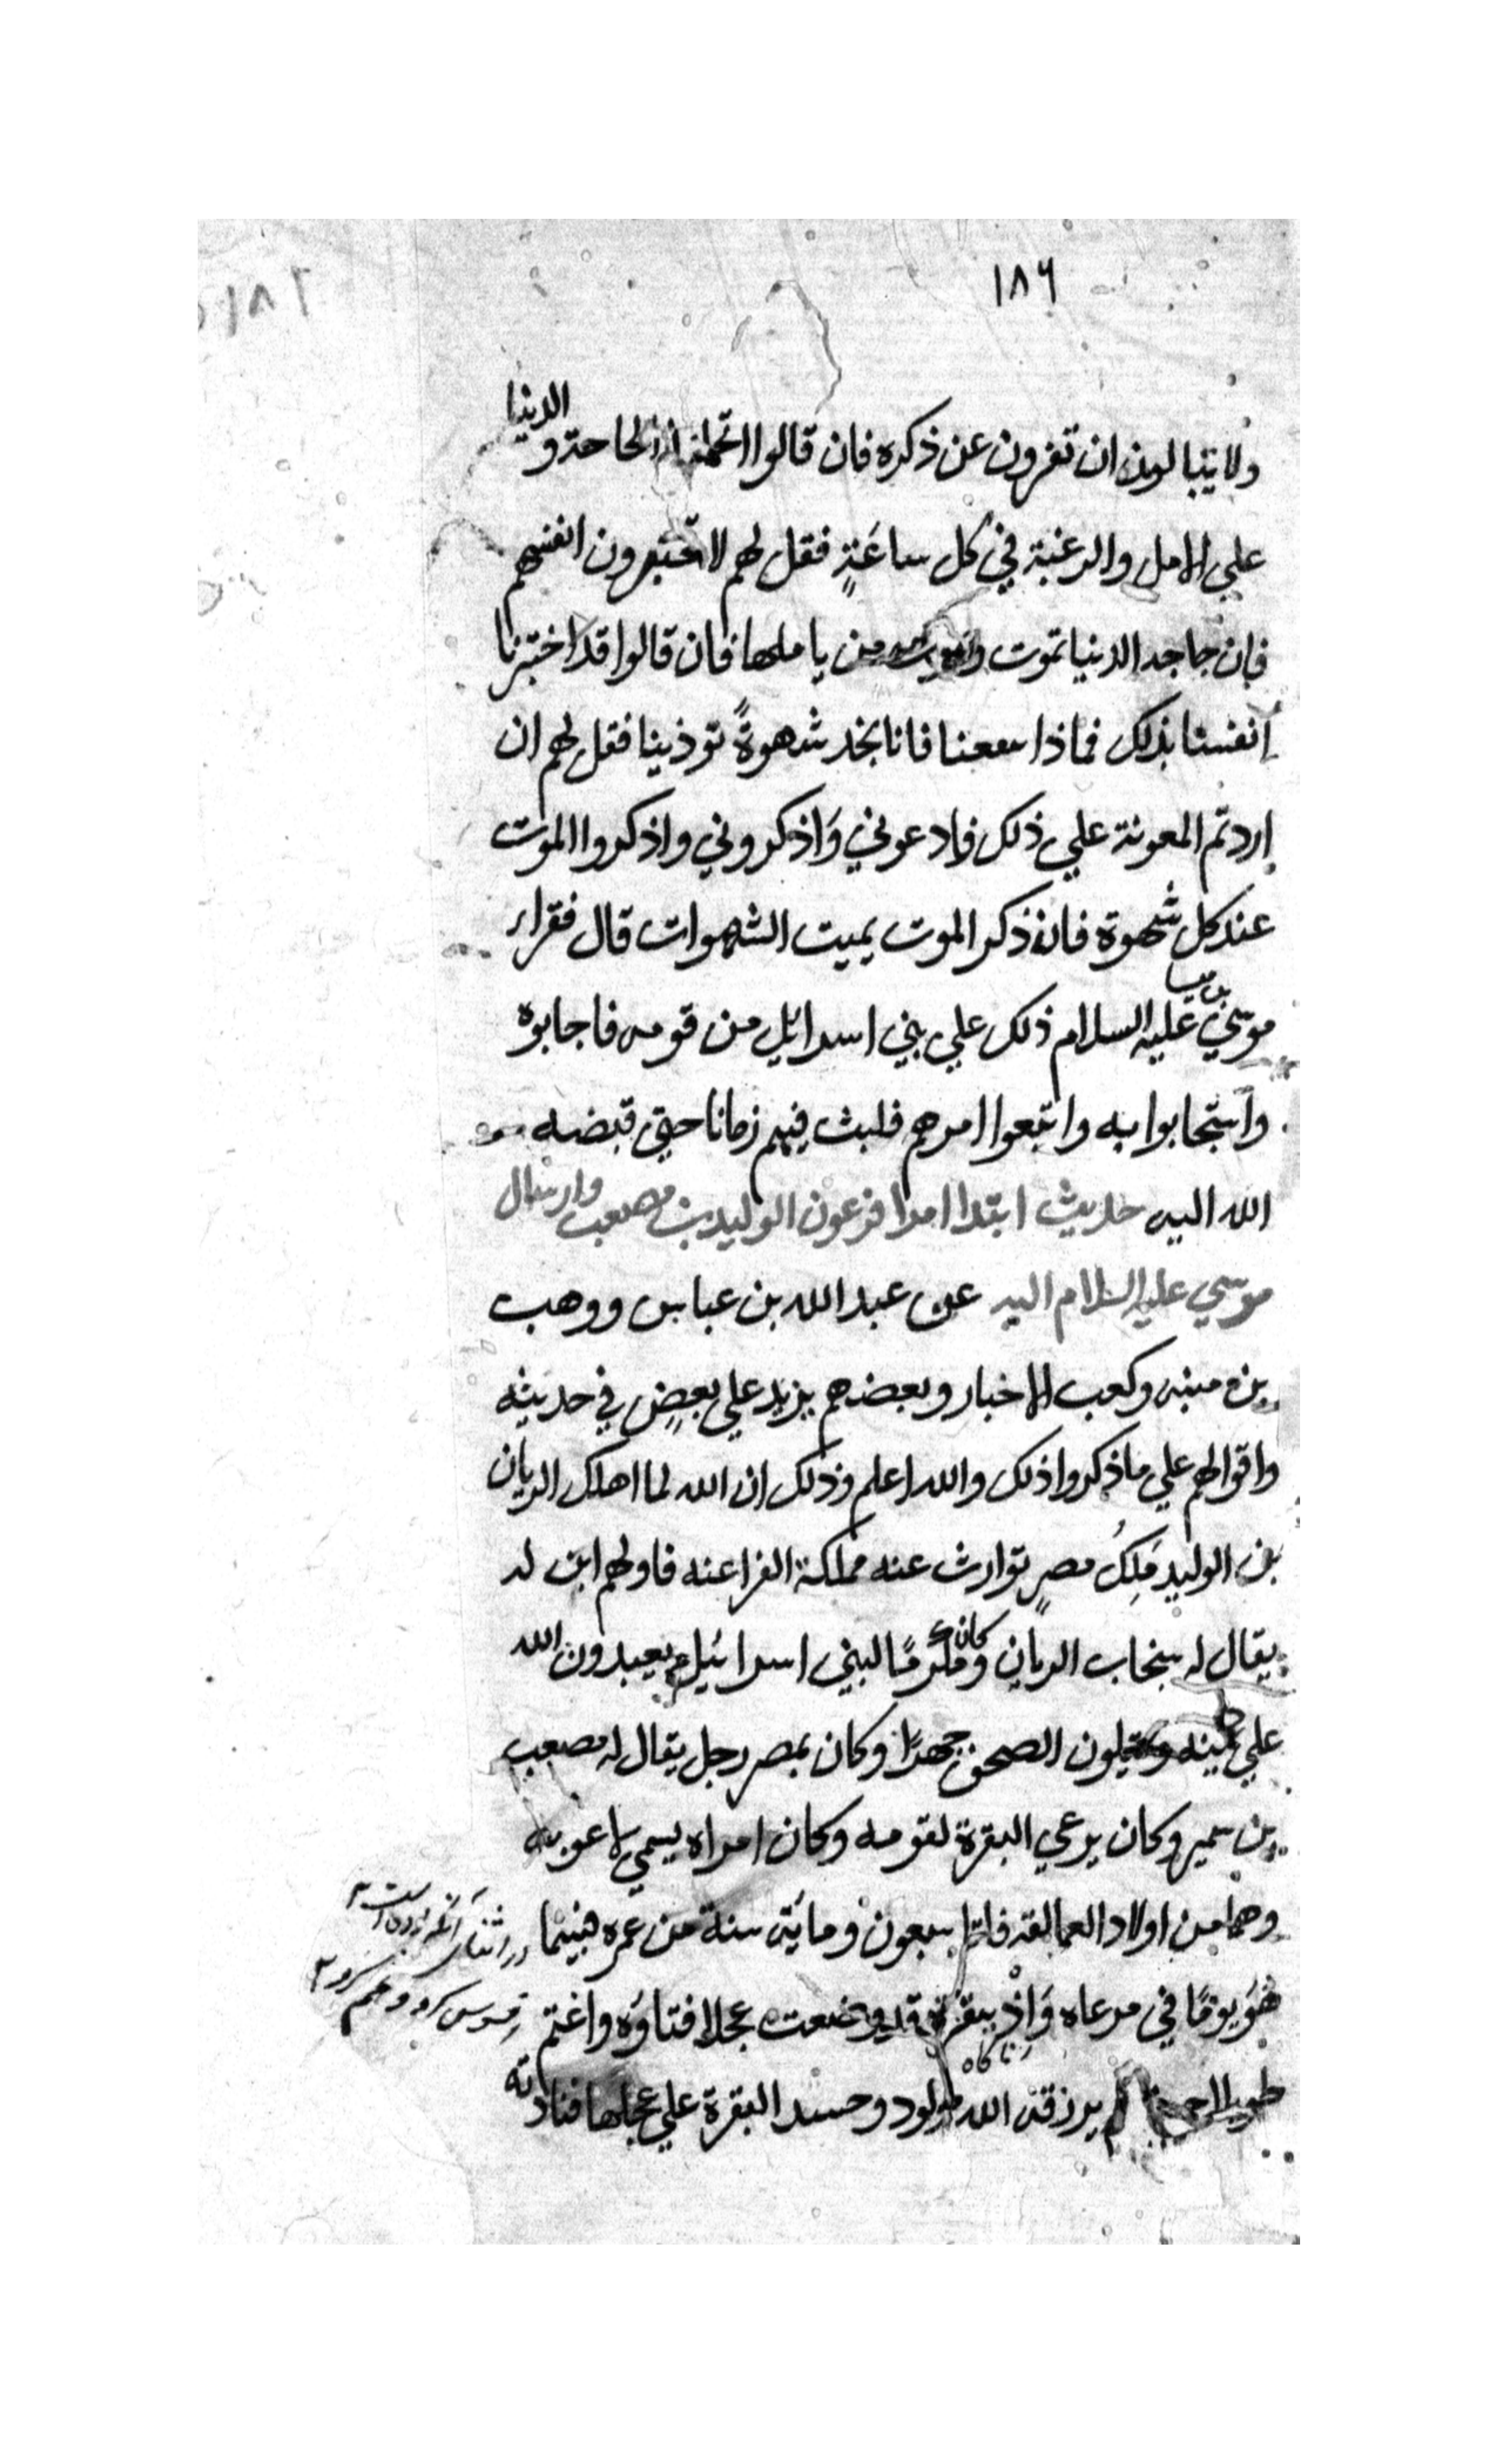 ١٨٦
ولا يبالون ان تفرون عن ذكره فان قالوا الحاحة و الدينا
علي الامل والرغبة في كل ساعَةٍ فقل لهم لا تختبرون انفسهم
فان جاجد الدنيا تموت من ياملها فان قالوا قد اختبرنا
انفسنا بذلك فماذا معنا فانا نجد شهوةً توذينا فقل لهم ان
اردتم المعونة علي ذلك فادعوني وَاذكروني واذكروا الموت
عند كل شهوة فان ذكر الموت يميت الشهوات قال فقراء
موسي بن ميسا عليه السلام ذلك علي بني اسرائيل من قومه فاجابوه
واستجابوا به واتبعوا امرهم فلبث فيهم زمانا حتي قبضه
الله اليه حديث ابتدا امرا فرعون الوليد بن مصعب وارسال
موسي عليه السلام اليه عن عبد الله بن عباس ووهب
بن منبه وكعب الاخبار وبعضهم يزيد علي بعضٍ في حديثه
واقوالهم علي ما ذكروا ذلك والله اعلم وذلك ان الله لما اهلك الريان
بن الوليد مَلِكُ مصرٍ توارث عنه مملكة الفراعنه فاولهم ابن له
يقال له سنجاب الريان وكان مكرمًا لبني اسرائيل يعبدون الله
علي الصحف جهدًا وكان بمصر رجل يقال له مصعب
بن سمير وكان يرعي البقرة لقومه وكان امراه يسمي راعوبه
وهما من اولاد العمالقه فاتا سبعون ومايتى سنة من عمره فبينما
هُوَ يومًا في مرعاه وَاِذ ببقرة قد وضعت عجلا فتاوَه واغتم
لم يرزقه الله مولود وحسد البقرة علي عجلها فنادته